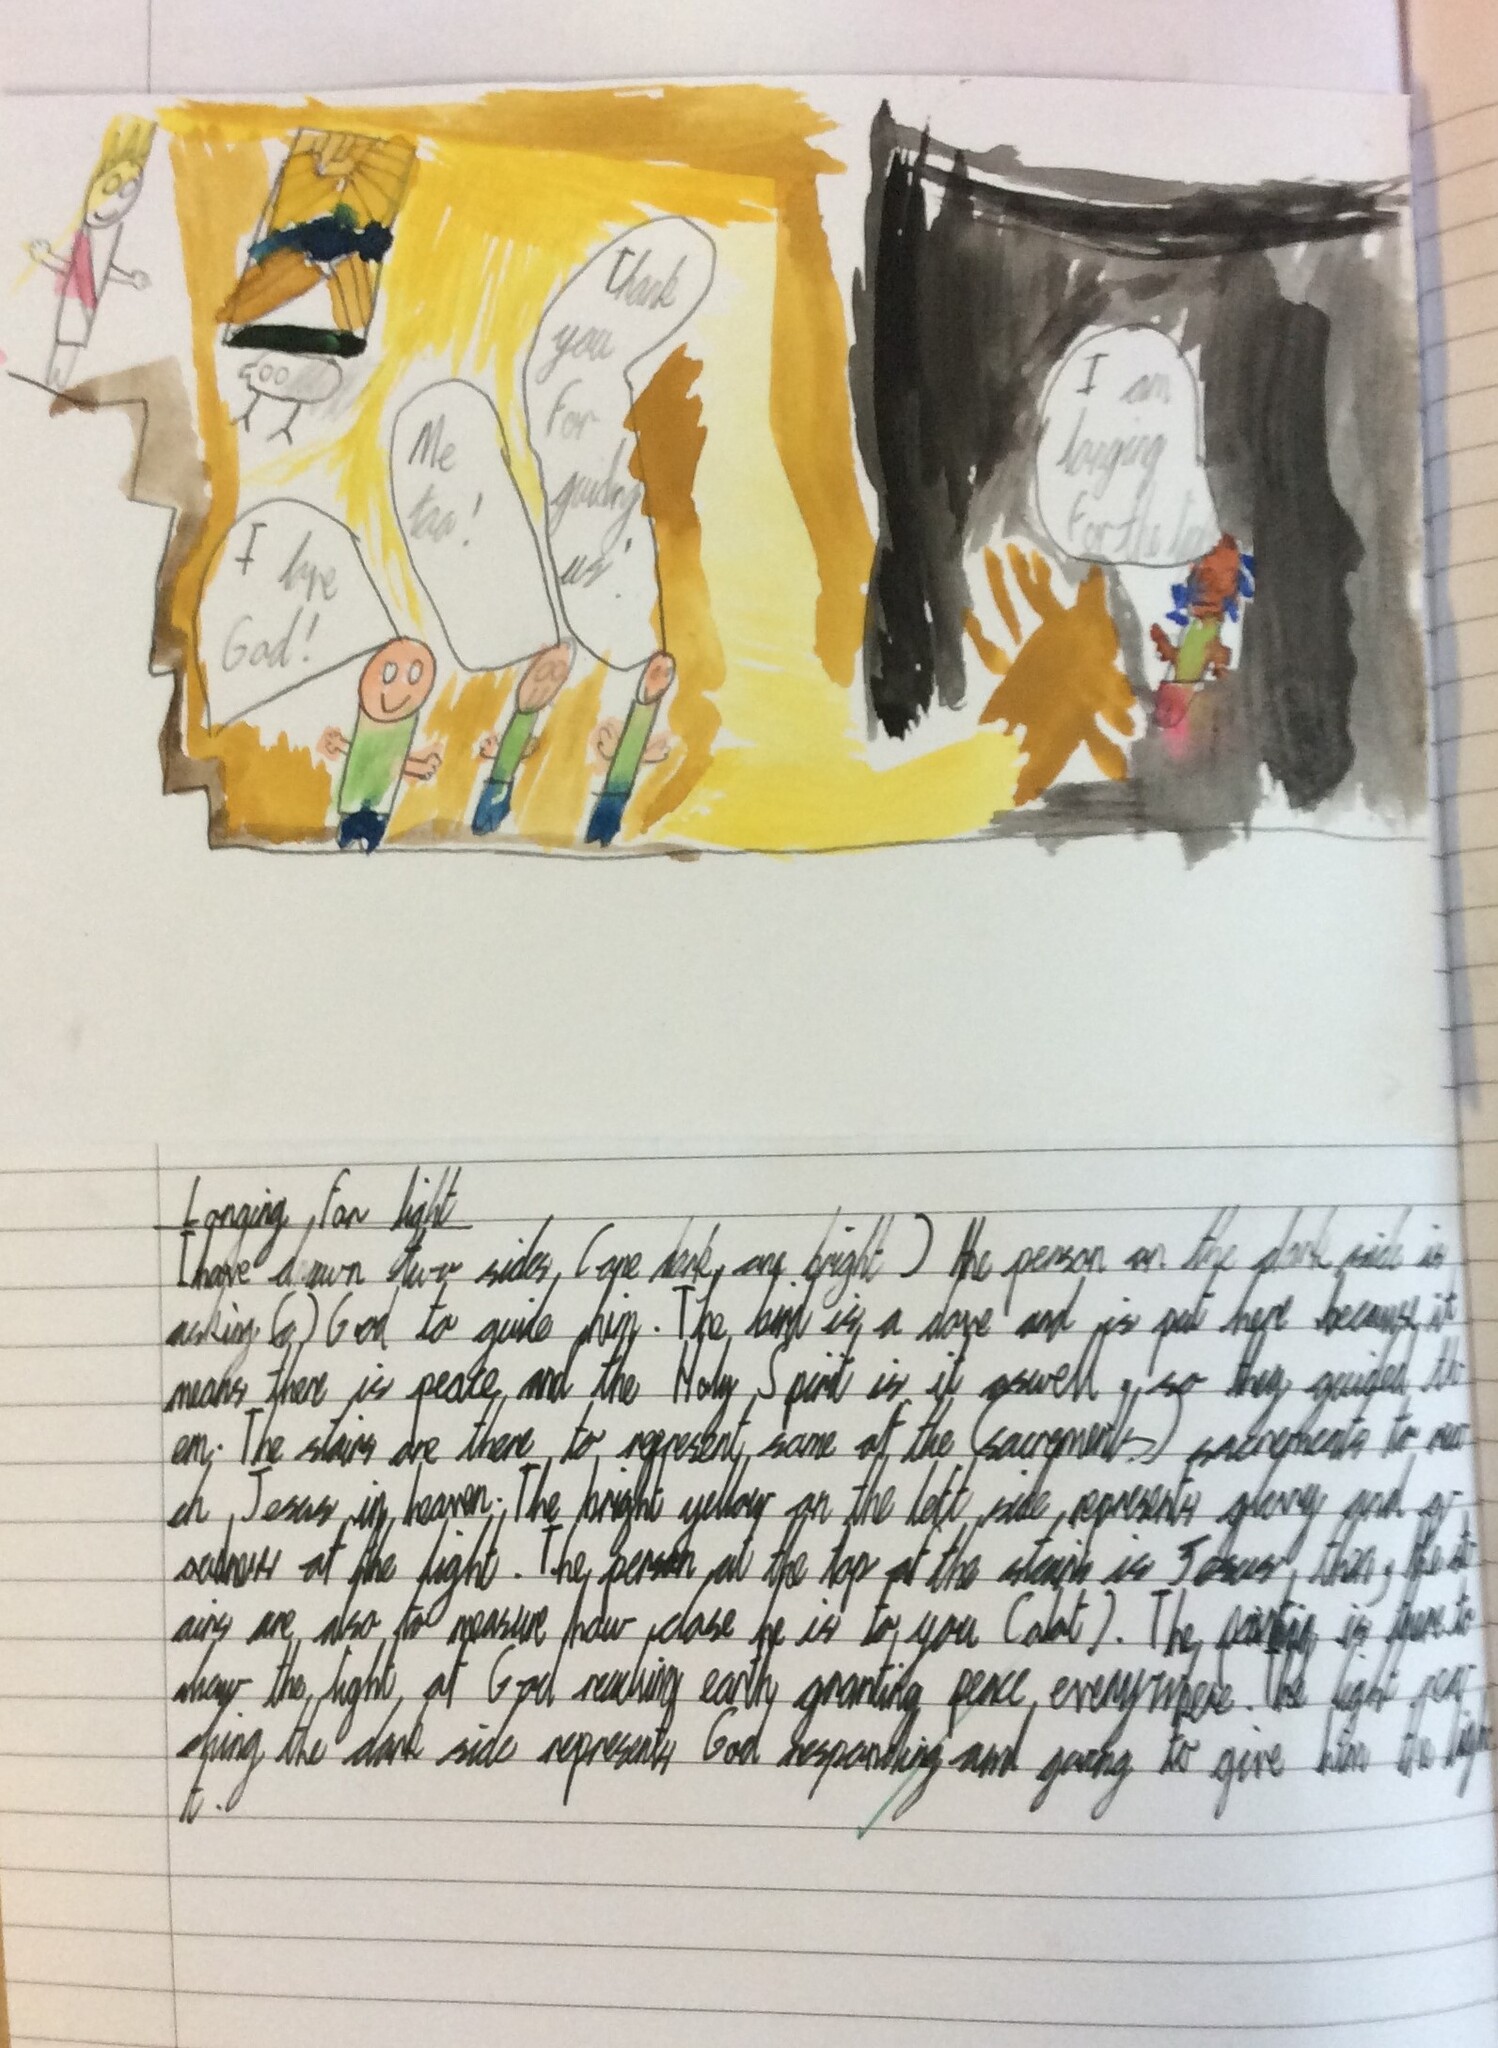 I love
God!
Me
too!
Thank
you
for
guiding
us!
I am
longing
For the
Longing for light
I have drawn two sides, (one dark, one bright) the person on the dark side is
asking (a) God to guide him. The bird is a dove and is put here because it
means there is peace and the Holy Spirit is it aswell, so they guided th
em. The stairs are there to represent some of the (sacrements) sacrements to rea
ch Jesus in heaven. The bright yellow on the left side represents glory and g
oodness of the light. The person at the top of the stairs is Jesus, then, the st
airs are also to measure how close he is to you (alot). The painting is there to
show the light of God reaching earth granting peace everywhere. The light rea
ching the dark side represents God responding and going to give him the ligh
t.